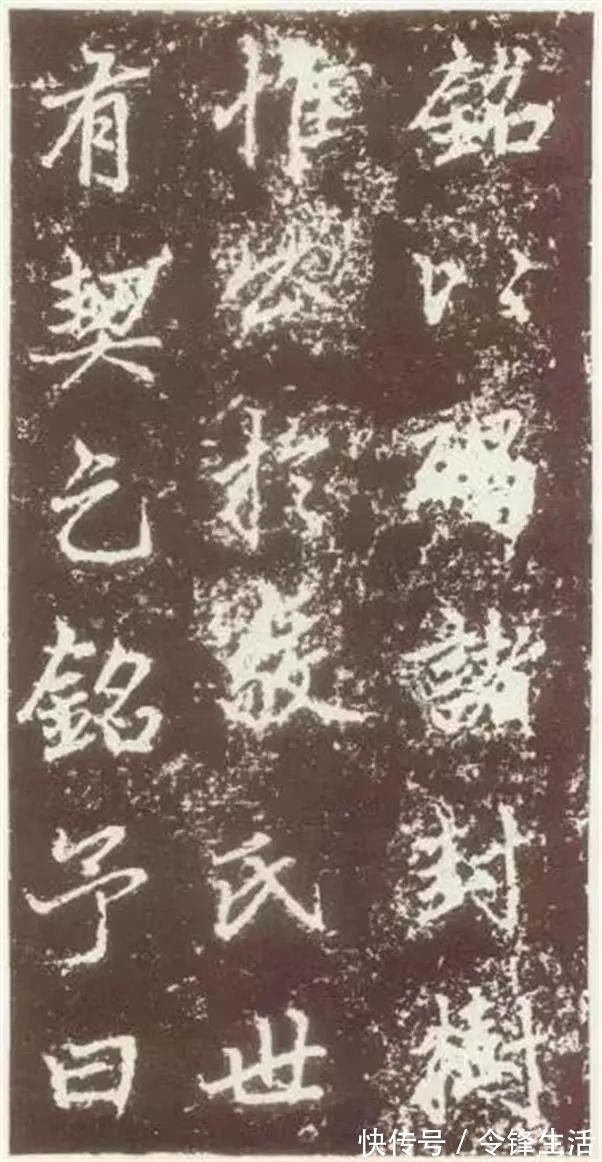 銘以碣諸封樹
惟於氏世
有契之銘予曰
快传号 / 令锋生活